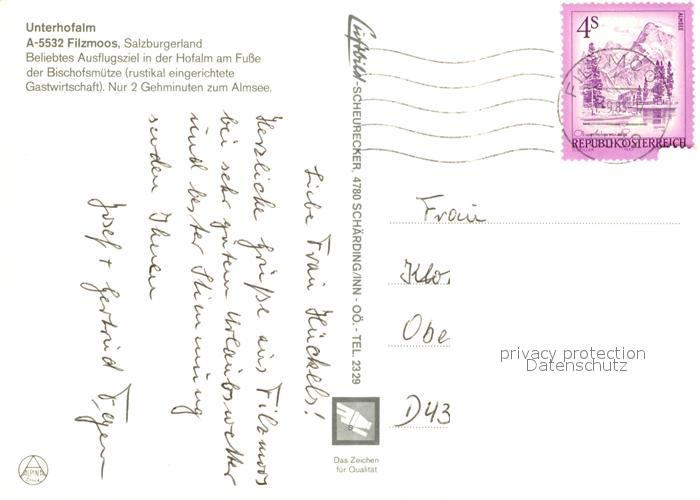 Unterhofalm
A-5532 Filzmoos, Salzburgerland
Beliebtes Ausflugsziel in der Hofalm am Fuße
der Bischofsmütze (rustikal eingerichtete
Gastwirtschaft). Nur 2 Gehminuten zum Almsee.
Liebe Frau Hückels!
Herzliche Grüße aus Filzmoos
bei sehr gutem Urlaubswetter
und bester Stimmung
senden Ihnen
Josef + Gertrud
Luftbild-SCHEURECKER, 4780 SCHÄRDING/INN - OÖ. - TEL. 2329
4S
ALMSEE
FILZMOOS
REPUBLIK ÖSTERREICH
Frau
Klo
Obe
D43
privacy protection
Datenschutz
Das Zeichen
für Qualität
ALPINA